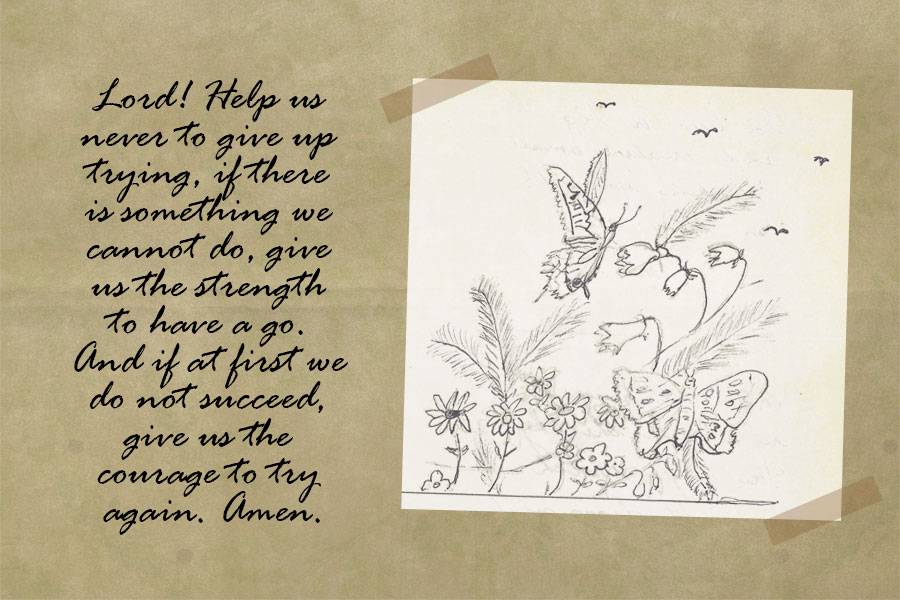 Lord! Help us
never to give up
trying, if there
is something we
cannot do, give
us the strength
to have a go.
And if at first we
do not succeed,
give us the
courage to try
again. Amen.